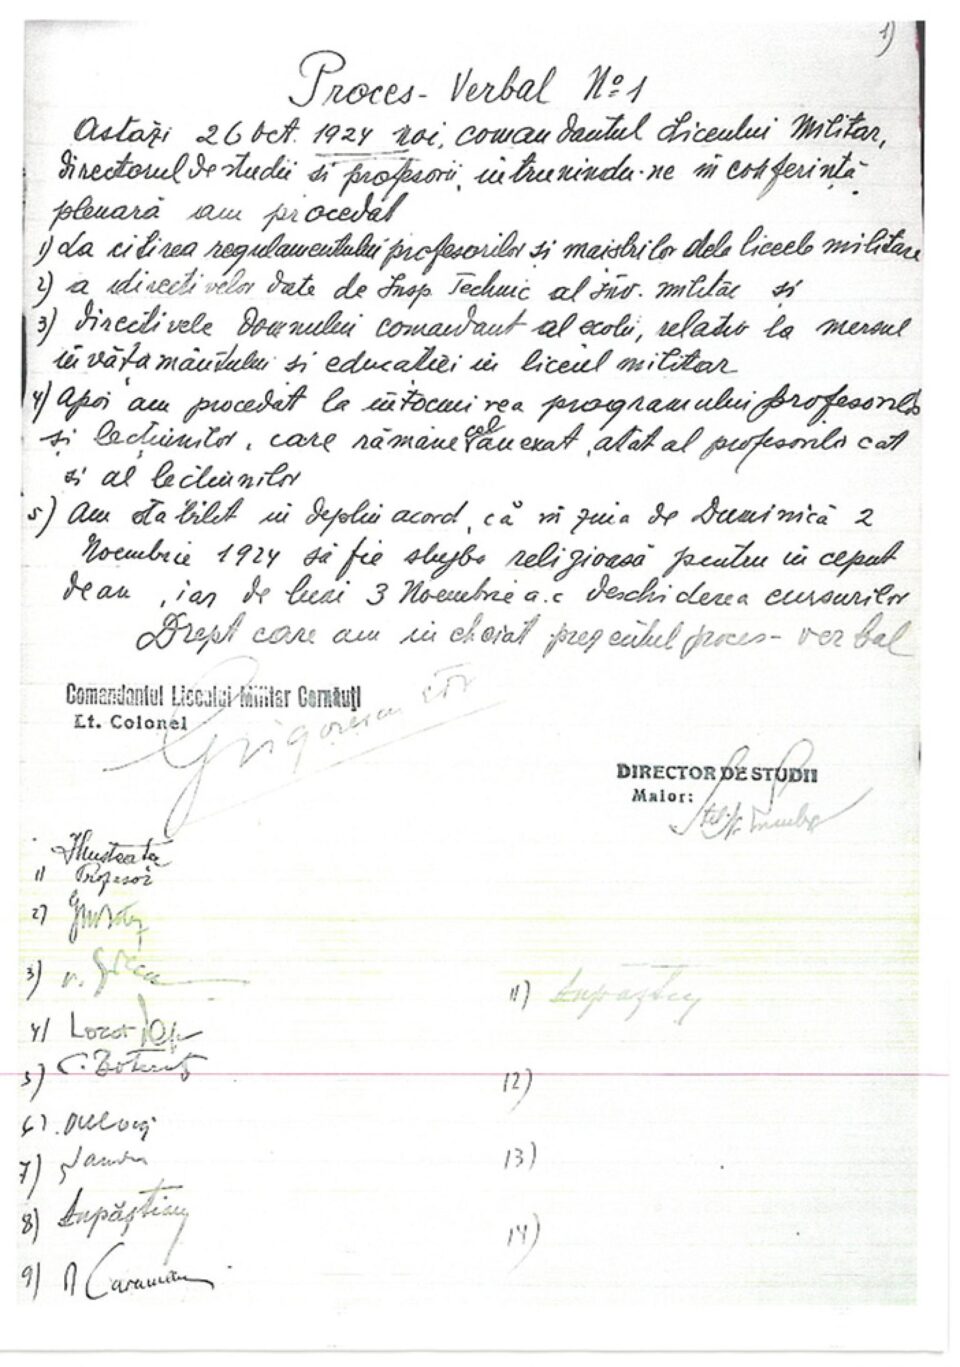 1)
Proces-Verbal No 1
Astăzi 26 Oct. 1924 noi, comandantul Liceului Militar,
directorul de studii si profesorii, intrunindu-ne in conferință
plenară am procedat
1) La citirea regulamentului profesorilor si maistrilor dela liceele militare
2) a directivelor date de Insp. Technic al Inv. militar si
3) directivele Domnului comandant al scolii, relativ la mersul
invățamântului si educatiei in liceul militar
4) Apoi am procedat la intocmirea programului profesorilor
si lectiunilor, care rămâne cel anexat, atat al profesorilor cat
si al lectiunilor
5) Am stabilit in deplin acord, că in ziua de Duminică 2
Noembrie 1924 să fie slujba religioasă pentru inceput
de an, iar de luni 3 Noembrie a.c deschiderea cursurilor
Drept care am incheiat prezentul proces-verbal
Comandantul Liceului Militar Cernăuți
Lt. Colonel
Grigorescu
DIRECTOR DE STUDII
Maior:
1) Profesor
2)
3)
4)
5)
6)
7)
8)
9)
11)
12)
13)
14)